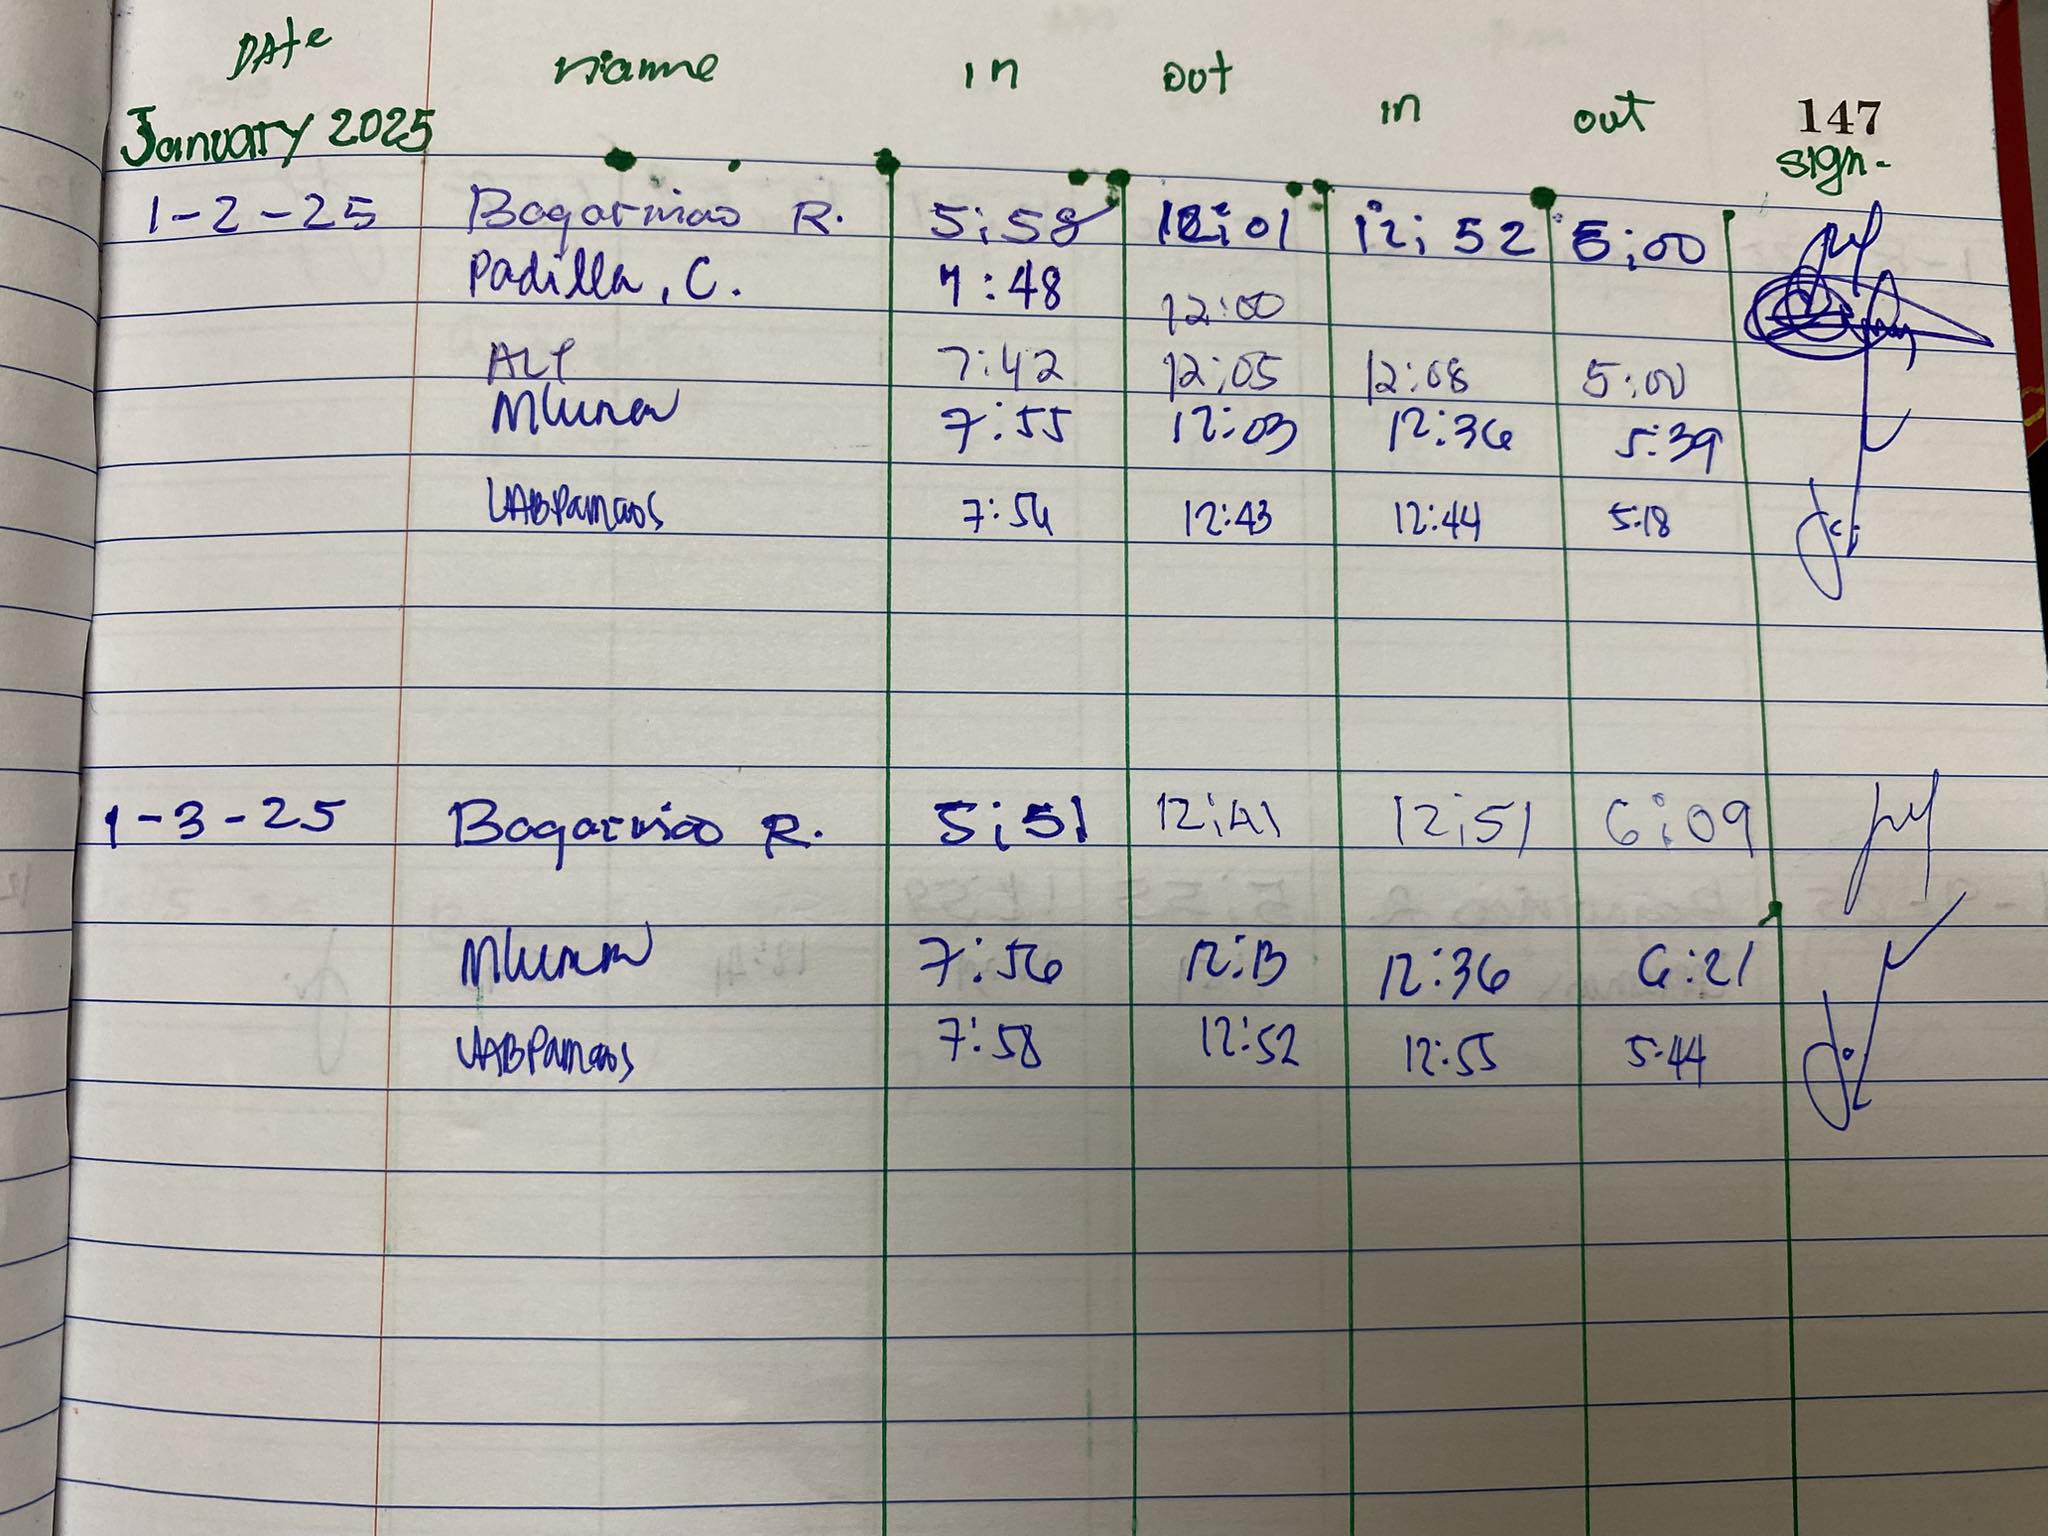 DATE Name in out in out 147
January 2025 sign.
1-2-25 Bagarinao R. 5:58 12:01 12:52 5:00
Padilla, C. 7:48 12:00
ALY 7:42 12:05 12:08 5:00
Mluna 7:55 12:03 12:36 5:39
LABPamaos 7:54 12:43 12:44 5:18
1-3-25 Bagarinao R. 5:51 12:41 12:51 6:09
Mluna 7:56 12:13 12:36 6:21
LABPamaos 7:58 12:52 12:55 5:44